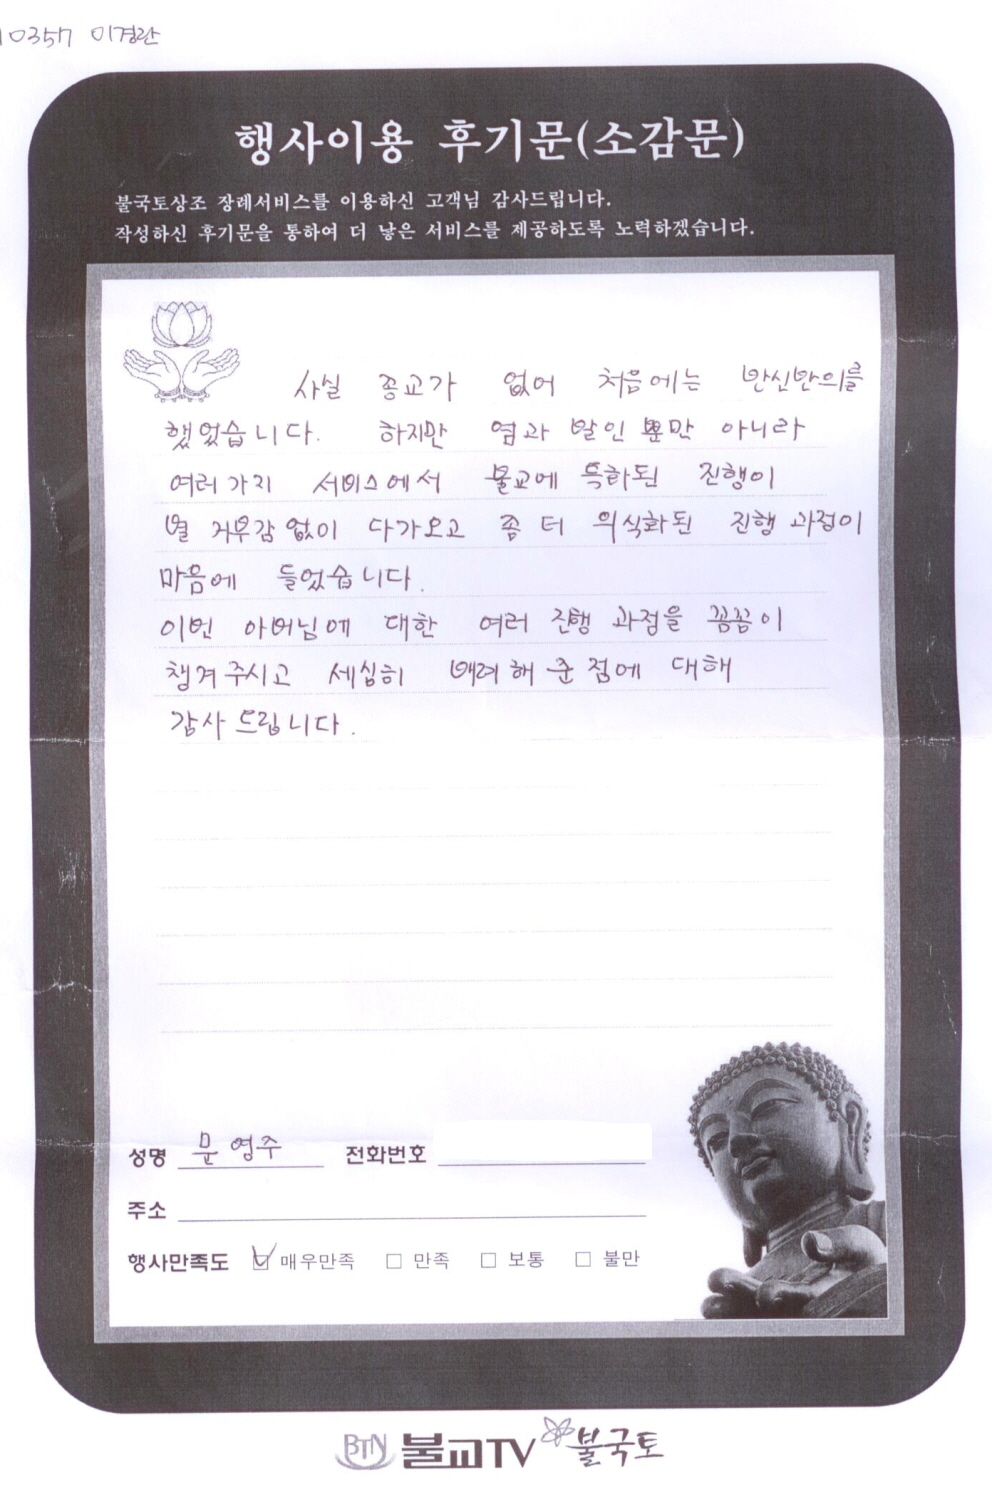 10357 이경란
행사이용 후기문(소감문)
불국토상조 장례서비스를 이용하신 고객님 감사드립니다.
작성하신 후기문을 통하여 더 낳은 서비스를 제공하도록 노력하겠습니다.
사실 종교가 없어 처음에는 반신반의를
했었습니다. 하지만 염과 발인 뿐만 아니라
여러가지 서비스에서 불교에 특화된 진행이
별 거부감 없이 다가오고 좀 더 의식화된 진행 과정이
마음에 들었습니다.
이번 아버님에 대한 여러 진행 과정을 꼼꼼이
챙겨주시고 세심히 배려해 준 점에 대해
감사드립니다.
성명 문영주 전화번호
주소
행사만족도 매우만족 만족 보통 불만
BTN 불교TV 불국토